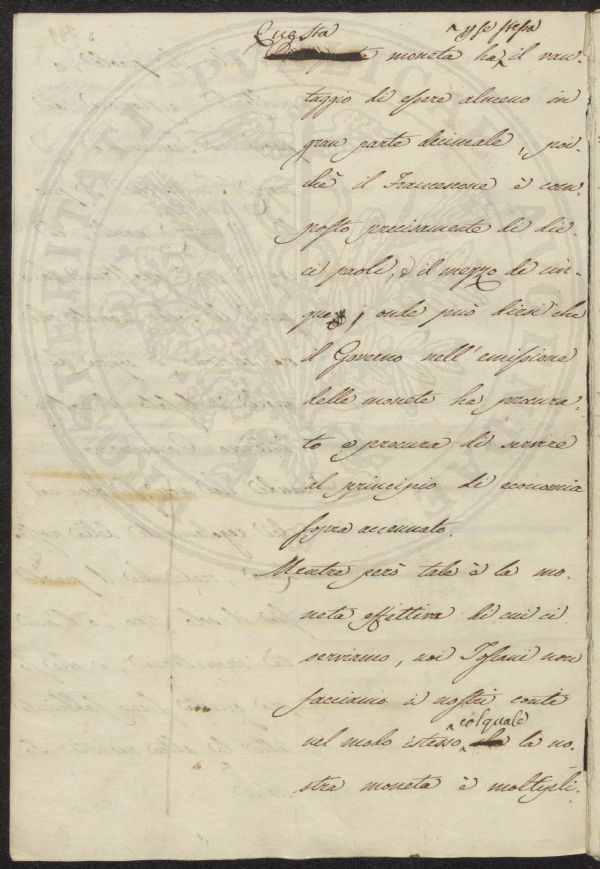 Questa
moneta ha per se stessa il van-
taggio di essere almeno in
gran parte decimale, poi-
chè il Francescone è com-
posto precisamente di die-
ci paoli, e il mezzo di cin-
que; onde può dirsi che
il Governo nell'emissione
delle monete ha procura-
to e procura di servire
al principio di economia
sopra accennato.
Mentre però tale è la mo-
neta effettiva di cui ci
serviamo, noi Tosani non
facciamo i nostri conti
nel modo istesso col quale la no-
stra moneta è moltipli-